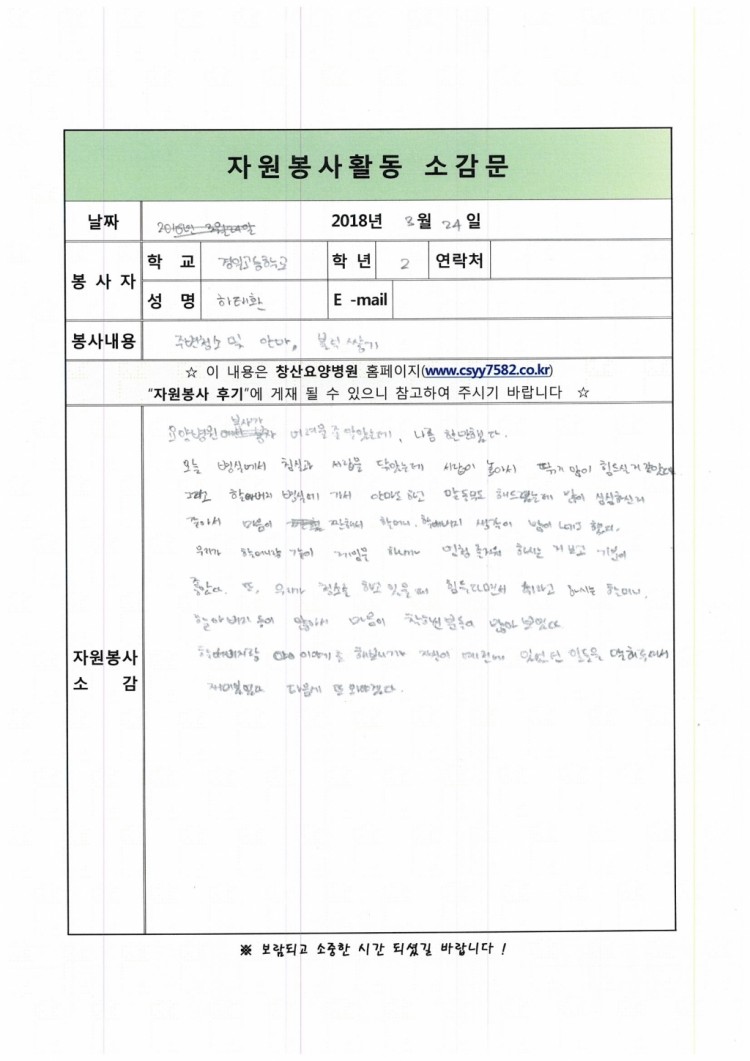 자원봉사활동 소감문
날짜 2018년 3월 24일
봉사자 학교 경일고등학교 학년 2 연락처
성명 하태환 E-mail
봉사내용 주변청소 및 안마,
☆ 이 내용은 창산요양병원 홈페이지(www.csyy7582.co.kr)
“자원봉사 후기”에 게재 될 수 있으니 참고하여 주시기 바랍니다 ☆
자원봉사 소감
요양병원 봉사가 어려울줄 알았는데, 나름 할만했다.
오늘 병실에서 침실과 서랍을 닦았는데 많이 힘드실 거 같았다
그리고 할아버지 병실에 가서 안마도 하고 말동무도 해드렸는데 많이 심심하신거
같아서 마음이 찐해서 할머니, 할아버지 생각이 많이 나고 했다.
우리가 할머니랑 같이 게임을 하니까 거 보고 기분이
좋았다. 또, 우리가 청소를 하고 있을 때 힘들다면서 쉬라고 하시는 할머니,
할아버지 들이 많아서 마음이 착하신 분들이 많아 보였다
할아버지랑 이야기를 해보니까 자신이 예전에 있었던 일들을 말해주셔서
재미있었다 다음에 또 와야겠다.
※ 보람되고 소중한 시간 되셨길 바랍니다 !